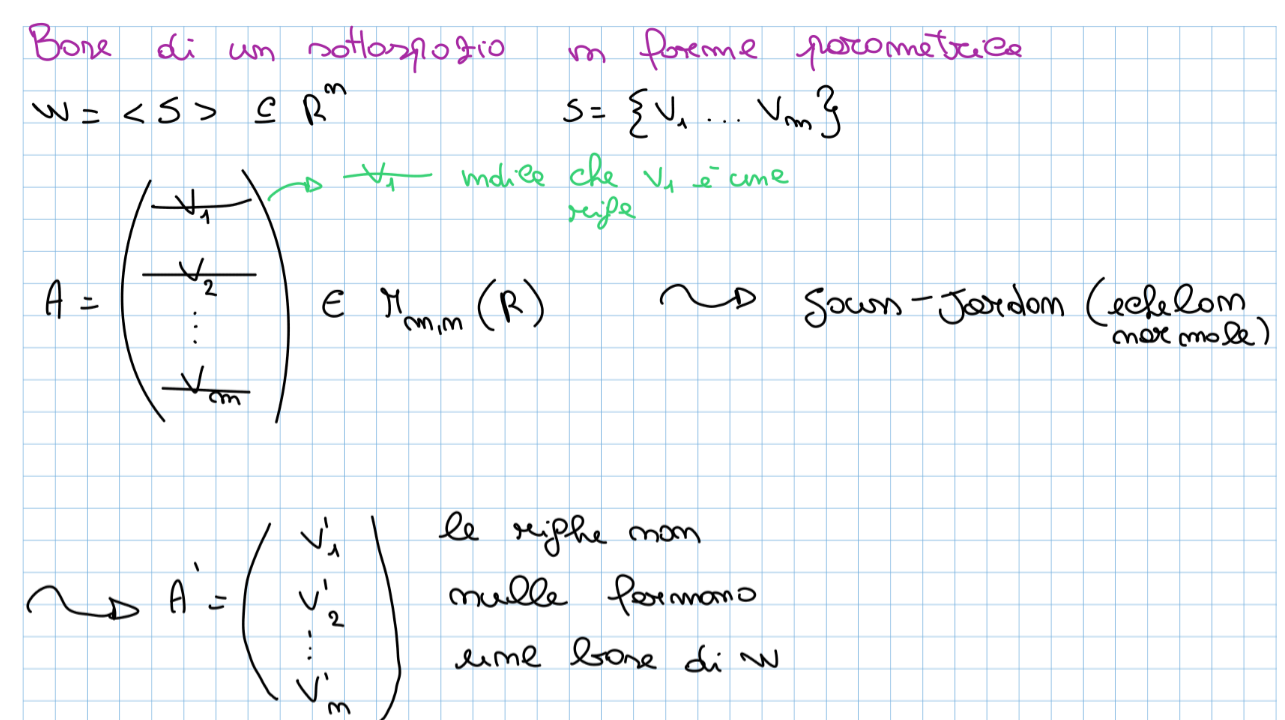 Base di un sottospazio in forma parametrica
W = < S > ⊆ R^n S = {V_1 ... V_m}
V_1 → V_1 indica che V_1 è una
riga
V_2
A = ⋮ ∈ M_{m,n} (R) ⇝ Gauss-Jordan (echelon
normale)
V_m
V'_1 le righe non
⇝ A' = V'_2 nulle formano
⋮ una base di W
V'_m